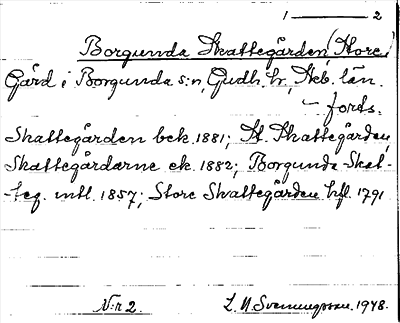 1 ——— 2
Borgunda Skattegården (Store)
Gård i Borgunda s:n, Gudh. hr, Skb. län.
forts.
Skattegården bek. 1881; St. Skattegården,
Skattegårdarne ek. 1882; Borgunda Skat-
teg. intl. 1857; Store Skattegården hfl. 1791
N:r 2. L. M. Svenungsson. 1948.